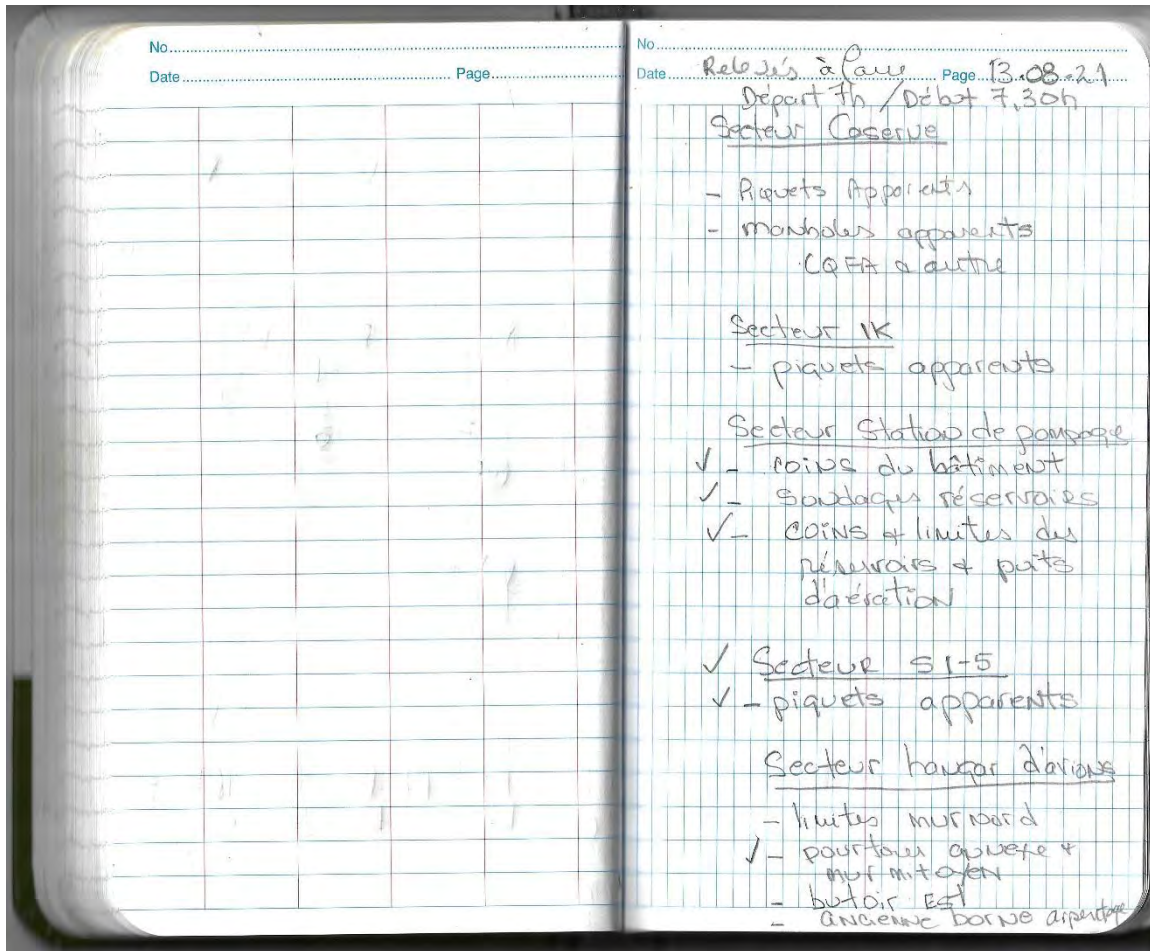 No.
Date Page
No.
Date Relevés à faire Page 13-08-21
Départ 7h / Début 7,30h
Secteur Caserne
- Piquets Apparents
- manholes apparents
CQFA à autre
Secteur 1K
- piquets apparents
Secteur Station de pompage
✓ - coins du bâtiment
✓ - sondages réservoirs
✓ - coins + limites des
réservoirs + puits
d'aération
✓ Secteur S1-5
✓ - piquets apparents
Secteur hangar d'avions
- limites mur nord
✓ - pourtour annexe +
mur mitoyen
- butoir Est
- ancienne borne arpentage